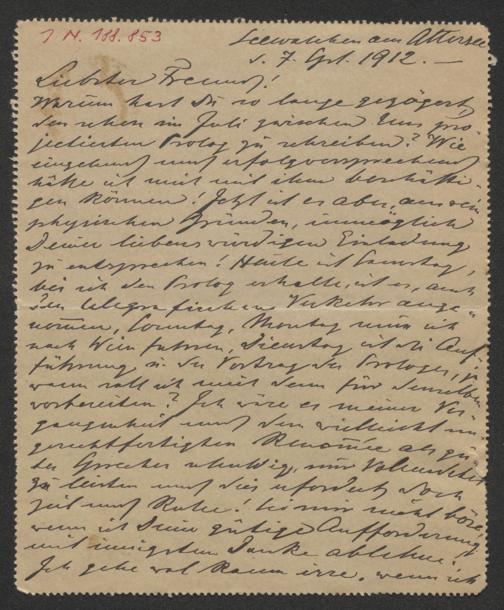 I N. 188.853
Seewalchen am Attersee
d. 7. Spt. 1912. —
Liebster Freund!
Warum hast Du so lange gezögert,
den schon im Juli zwischen Euns pro-
jectierten Prolog zu schreiben? Wie
eingehend und erfolgversprechend
hätte ich mich mit ihm beschäfti-
gen können! Jetzt ist es aber, aus rein
physischen Gründen, unmöglich
Deiner liebenswürdigen Einladung
zu entsprechen! Heute ist Samstag,
bis ich den Prolog erhalte, ist es, auch
den telegrafischen Verkehr ange-
nommen, Sonntag, Montag muss ich
nach Wien fahren, Dienstag ist die Auf-
führung u. der Vortrag des Prologes,
wann soll ich mich denn für denselben
vorbereiten? Ich wäre es meiner Ver-
gangenheit und dem vielleicht un-
gerechtfertigten Renommée als gu-
ter Sprecher schuldig, nur Vollendetes
zu leisten und dies erfordert doch
Zeit und Ruhe! Sei mir nicht böse,
wenn ich Deine gütige Aufforderung
mit innigstem Danke ablehne.
Ich gehe wol kaum irre, wenn ich